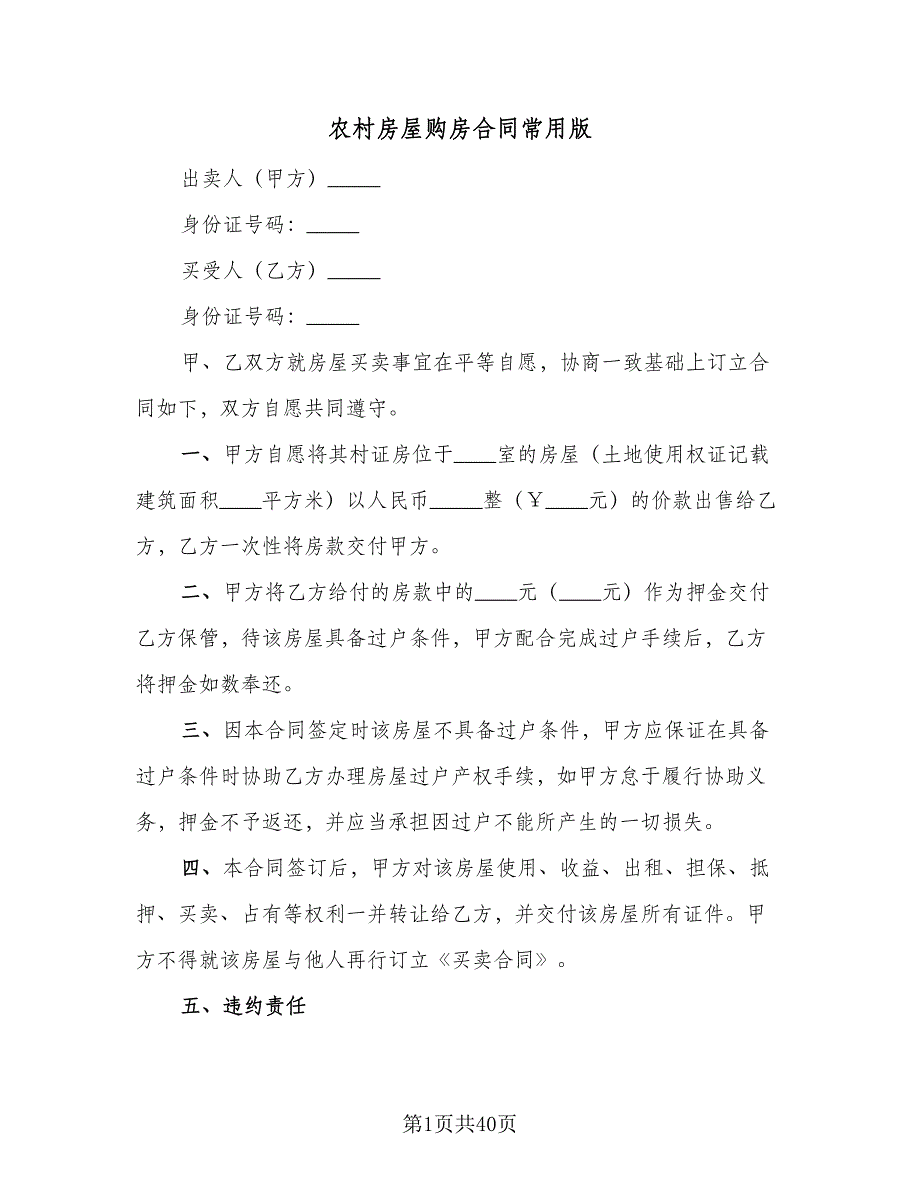 农村房屋购房合同常用版
出卖人（甲方）_____
身份证号码：_____
买受人（乙方）_____
身份证号码：_____
甲、乙双方就房屋买卖事宜在平等自愿，协商一致基础上订立合
同如下，双方自愿共同遵守。
一、甲方自愿将其村证房位于____室的房屋（土地使用权证记载
建筑面积____平方米）以人民币_____整（￥____元）的价款出售给乙
方，乙方一次性将房款交付甲方。
二、甲方将乙方给付的房款中的____元（____元）作为押金交付
乙方保管，待该房屋具备过户条件，甲方配合完成过户手续后，乙方
将押金如数奉还。
三、因本合同签定时该房屋不具备过户条件，甲方应保证在具备
过户条件时协助乙方办理房屋过户产权手续，如甲方怠于履行协助义
务，押金不予返还，并应当承担因过户不能所产生的一切损失。
四、本合同签订后，甲方对该房屋使用、收益、出租、担保、抵
押、买卖、占有等权利一并转让给乙方，并交付该房屋所有证件。甲
方不得就该房屋与他人再行订立《买卖合同》。
五、违约责任
第1页共40页